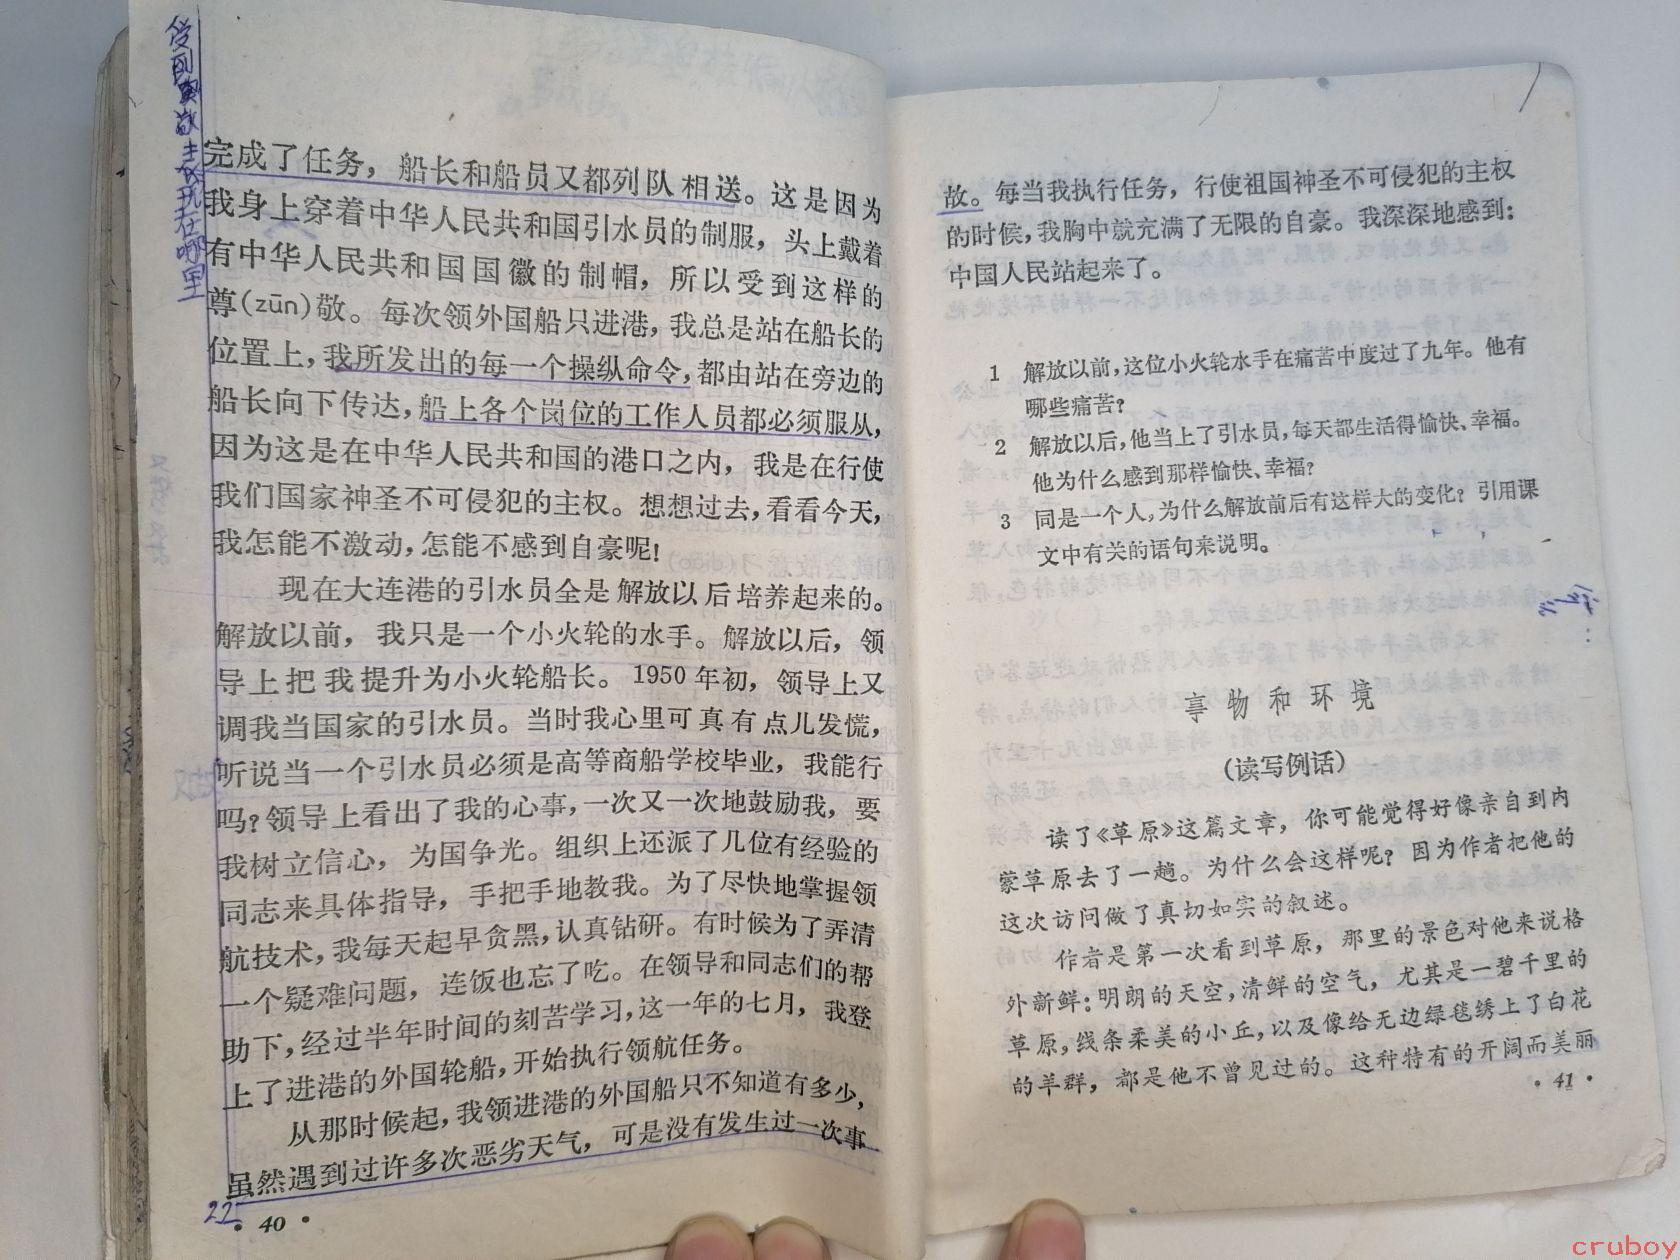 受到尊敬表现在哪里
完成了任务，船长和船员又都列队相送。这是因为
我身上穿着中华人民共和国引水员的制服，头上戴着
有中华人民共和国国徽的制帽，所以受到这样的
尊(zūn)敬。每次领外国船只进港，我总是站在船长的
位置上，我所发出的每一个操纵命令，都由站在旁边的
船长向下传达，船上各个岗位的工作人员都必须服从，
因为这是在中华人民共和国的港口之内，我是在行使
我们国家神圣不可侵犯的主权。想想过去，看看今天，
我怎能不激动，怎能不感到自豪呢！
现在大连港的引水员全是解放以后培养起来的。
解放以前，我只是一个小火轮的水手。解放以后，领
导上把我提升为小火轮船长。1950年初，领导上又
调我当国家的引水员。当时我心里可真有点儿发慌，
听说当一个引水员必须是高等商船学校毕业，我能行
吗？领导上看出了我的心事，一次又一次地鼓励我，要
我树立信心，为国争光。组织上还派了几位有经验的
同志来具体指导，手把手地教我。为了尽快地掌握领
航技术，我每天起早贪黑，认真钻研。有时候为了弄清
一个疑难问题，连饭也忘了吃。在领导和同志们的帮
助下，经过半年时间的刻苦学习，这一年的七月，我登
上了进港的外国轮船，开始执行领航任务。
从那时候起，我领进港的外国船只不知道有多少，
虽然遇到过许多次恶劣天气，可是没有发生过一次事
22
• 40 •
故。每当我执行任务，行使祖国神圣不可侵犯的主权
的时候，我胸中就充满了无限的自豪。我深深地感到：
中国人民站起来了。
1 解放以前，这位小火轮水手在痛苦中度过了九年。他有
哪些痛苦？
2 解放以后，他当上了引水员，每天都生活得愉快、幸福。
他为什么感到那样愉快、幸福？
3 同是一个人，为什么解放前后有这样大的变化？引用课
文中有关的语句来说明。
事物和环境
（读写例话）
读了《草原》这篇文章，你可能觉得好像亲自到内
蒙草原去了一趟。为什么会这样呢？因为作者把他的
这次访问做了真切如实的叙述。
作者是第一次看到草原，那里的景色对他来说格
外新鲜：明朗的天空，清鲜的空气，尤其是一碧千里的
草原，线条柔美的小丘，以及像给无边绿毯绣上了白花
的羊群，都是他不曾见过的。这种特有的开阔而美丽
• 41 •
cruboy